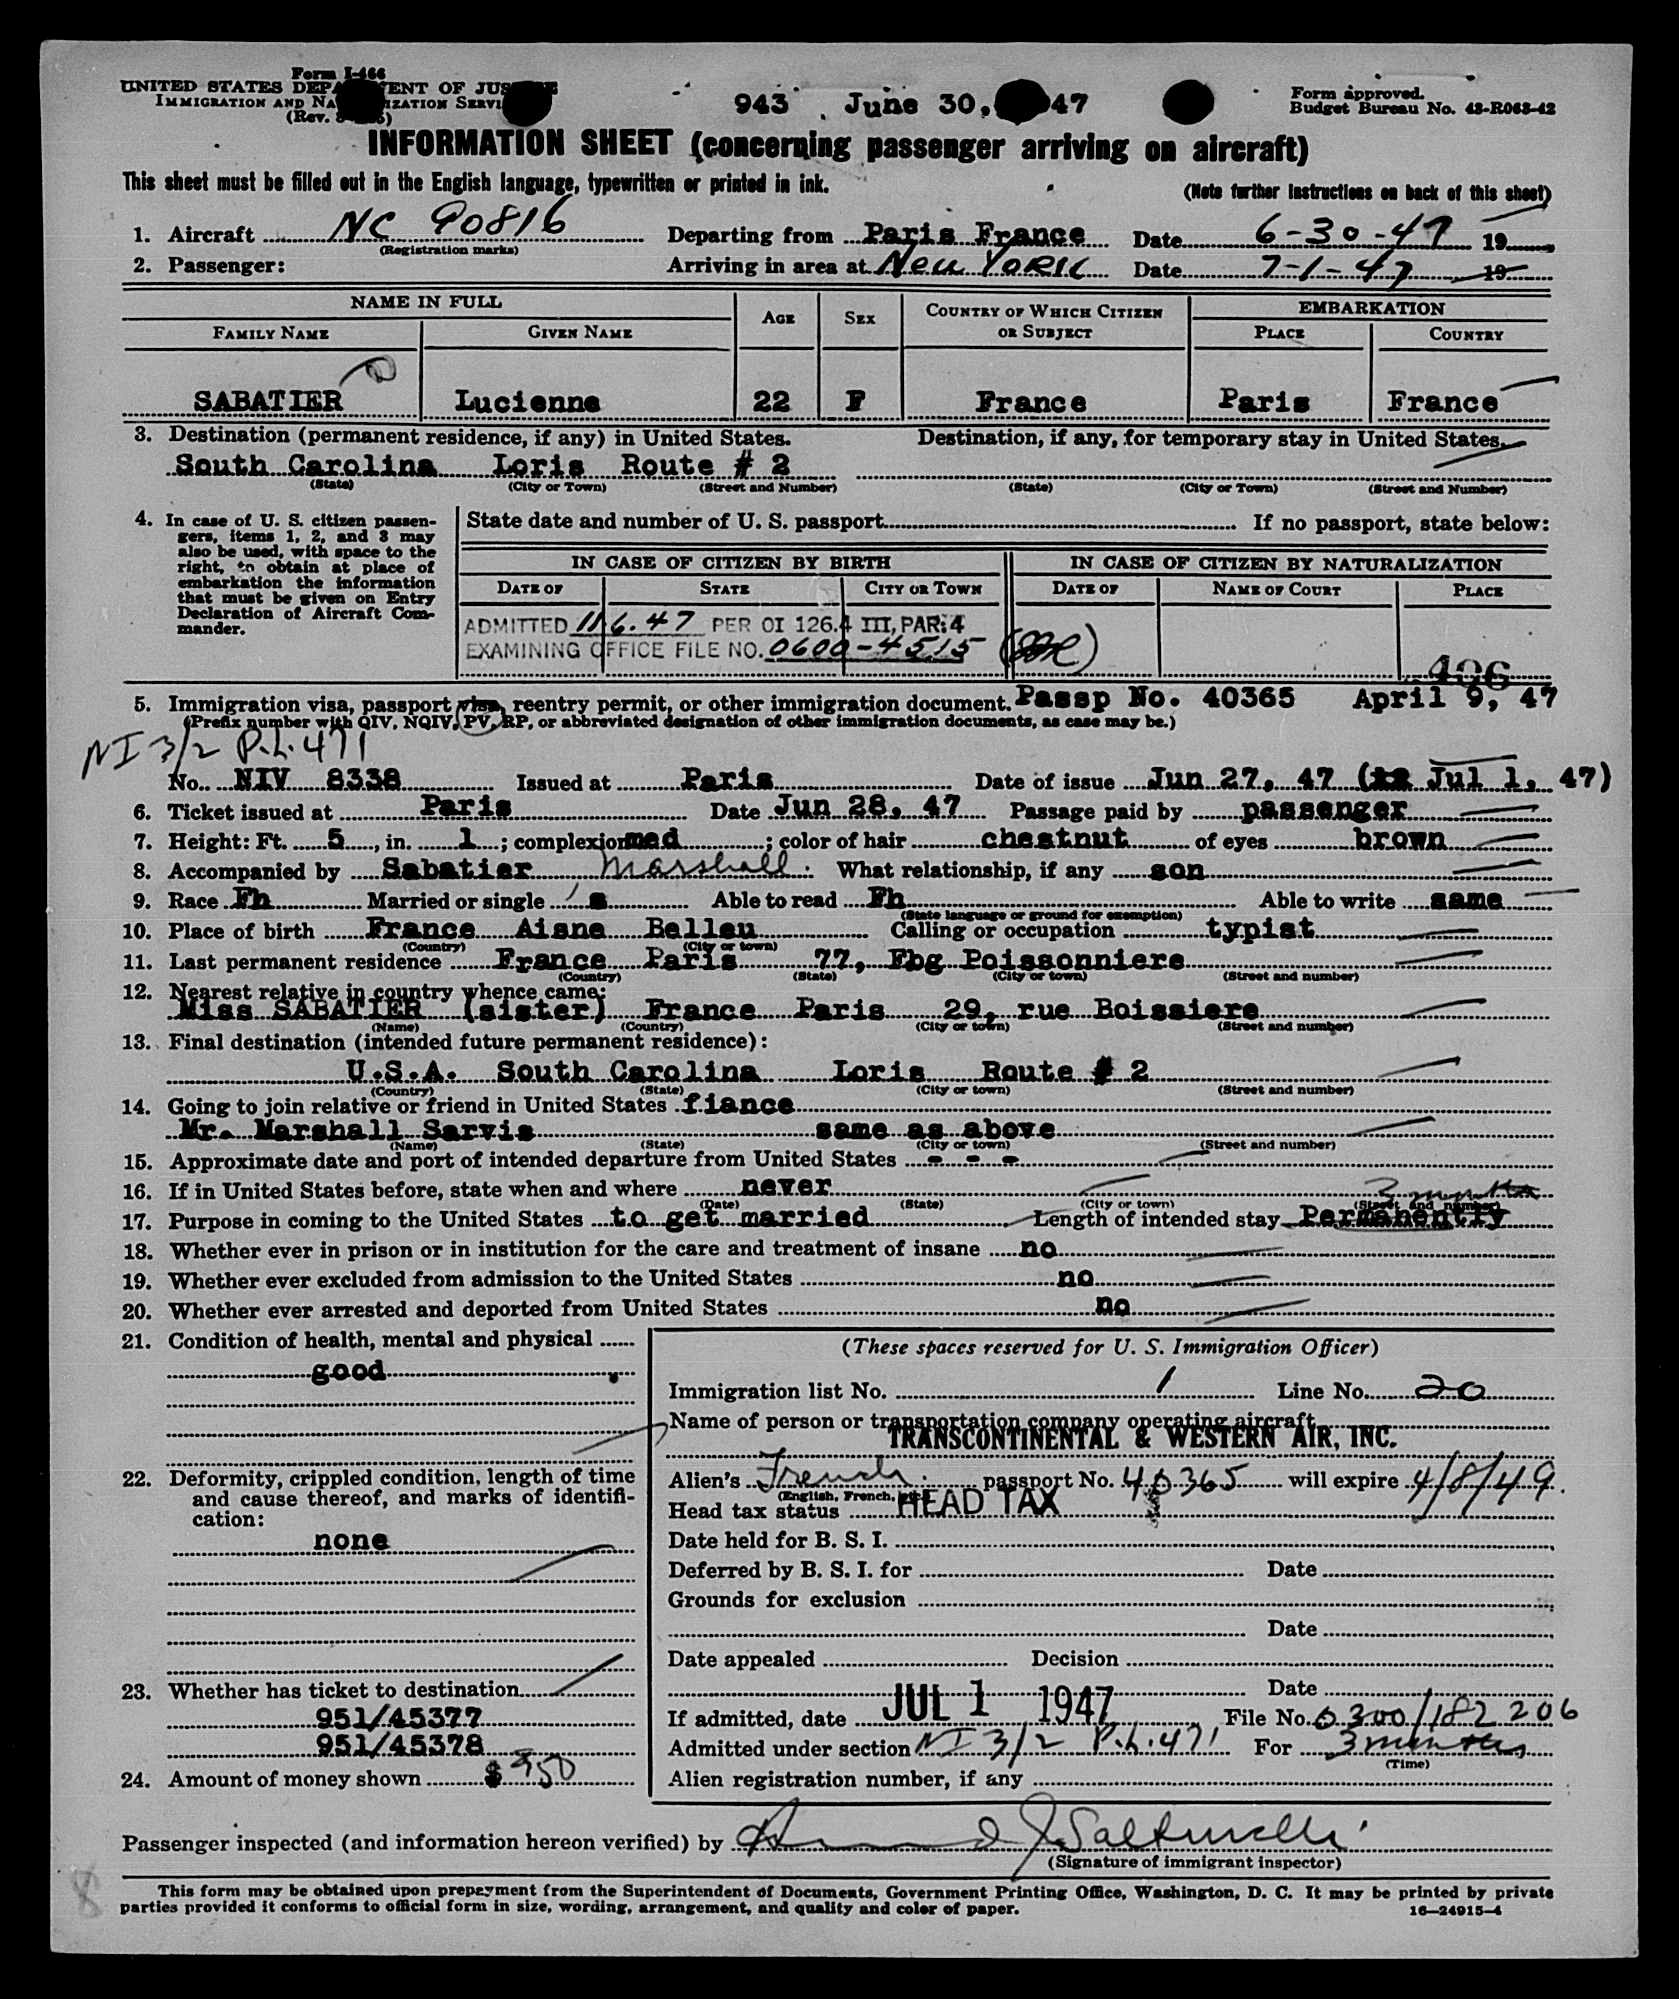 Form I-466
UNITED STATES DEPARTMENT OF JUSTICE
IMMIGRATION AND NATURALIZATION SERVICE
(Rev.
943 June 30, 47
Form approved.
Budget Bureau No. 43-R063-42
INFORMATION SHEET (concerning passenger arriving on aircraft)
This sheet must be filled out in the English language, typewritten or printed in ink.
(Note further instructions on back of this sheet)
1. Aircraft NC 90816 Departing from Paris France Date 6-30-47 19
(Registration marks)
2. Passenger: Arriving in area at New York Date 7-1-47 19
NAME IN FULL AGE SEX COUNTRY OF WHICH CITIZEN OR SUBJECT EMBARKATION
FAMILY NAME GIVEN NAME PLACE COUNTRY
SABATIER Lucienne 22 F France Paris France
3. Destination (permanent residence, if any) in United States. Destination, if any, for temporary stay in United States.
South Carolina Loris Route # 2
(State) (City or Town) (Street and Number) (State) (City or Town) (Street and Number)
4. In case of U. S. citizen passen-
gers, items 1, 2, and 3 may
also be used, with space to the
right, to obtain at place of
embarkation the information
that must be given on Entry
Declaration of Aircraft Com-
mander.
State date and number of U. S. passport If no passport, state below:
IN CASE OF CITIZEN BY BIRTH IN CASE OF CITIZEN BY NATURALIZATION
DATE OF STATE CITY OR TOWN DATE OF NAME OF COURT PLACE
ADMITTED 11.6.47 PER OI 126.4 III, PAR. 4
EXAMINING OFFICE FILE NO. 0600-4515
406
5. Immigration visa, passport visa, reentry permit, or other immigration document. Passp No. 40365 April 9, 47
(Prefix number with QIV, NQIV, PV, RP, or abbreviated designation of other immigration documents, as case may be.)
NI 3/2 P.L. 471
No. NIV 8338 Issued at Paris Date of issue Jun 27, 47 ( Jul 1, 47)
6. Ticket issued at Paris Date Jun 28, 47 Passage paid by passenger
7. Height: Ft. 5, in. 1; complexion med; color of hair chestnut of eyes brown
8. Accompanied by Sabatier Marshall. What relationship, if any son
9. Race Fh Married or single s Able to read Fh Able to write same
(State language or ground for exemption)
10. Place of birth France Aisne Belleu Calling or occupation typist
(Country) (City or town)
11. Last permanent residence France Paris 77, Fbg Poissonniere
(Country) (State) (City or town) (Street and number)
12. Nearest relative in country whence came:
Miss SABATIER (sister) France Paris 29, rue Boissiere
(Name) (Country) (City or town) (Street and number)
13. Final destination (intended future permanent residence):
U.S.A. South Carolina Loris Route # 2
(Country) (State) (City or town) (Street and number)
14. Going to join relative or friend in United States fiance
Mr. Marshall Sarvis same as above
(Name) (State) (City or town) (Street and number)
15. Approximate date and port of intended departure from United States - - -
16. If in United States before, state when and where never
(Date) (State) (City or town) (Street and number)
3 months
17. Purpose in coming to the United States to get married Length of intended stay Permanently
18. Whether ever in prison or in institution for the care and treatment of insane no
19. Whether ever excluded from admission to the United States no
20. Whether ever arrested and deported from United States no
21. Condition of health, mental and physical
good
22. Deformity, crippled condition, length of time
and cause thereof, and marks of identifi-
cation:
none
23. Whether has ticket to destination
951/45377
951/45378
24. Amount of money shown $950
(These spaces reserved for U. S. Immigration Officer)
Immigration list No. 1 Line No. 20
Name of person or transportation company operating aircraft
TRANSCONTINENTAL & WESTERN AIR, INC.
Alien's French passport No. 40365 will expire 4/8/49.
(English, French, etc.)
Head tax status HEAD TAX
Date held for B. S. I.
Deferred by B. S. I. for Date
Grounds for exclusion
Date
Date appealed Decision
Date
If admitted, date JUL 1 1947 File No. 0300/182206
Admitted under section NI 3/2 P.L. 471 For 3 months
(Time)
Alien registration number, if any
Passenger inspected (and information hereon verified) by
(Signature of immigrant inspector)
8
This form may be obtained upon prepayment from the Superintendent of Documents, Government Printing Office, Washington, D. C. It may be printed by private
parties provided it conforms to official form in size, wording, arrangement, and quality and color of paper.
16—24915-4